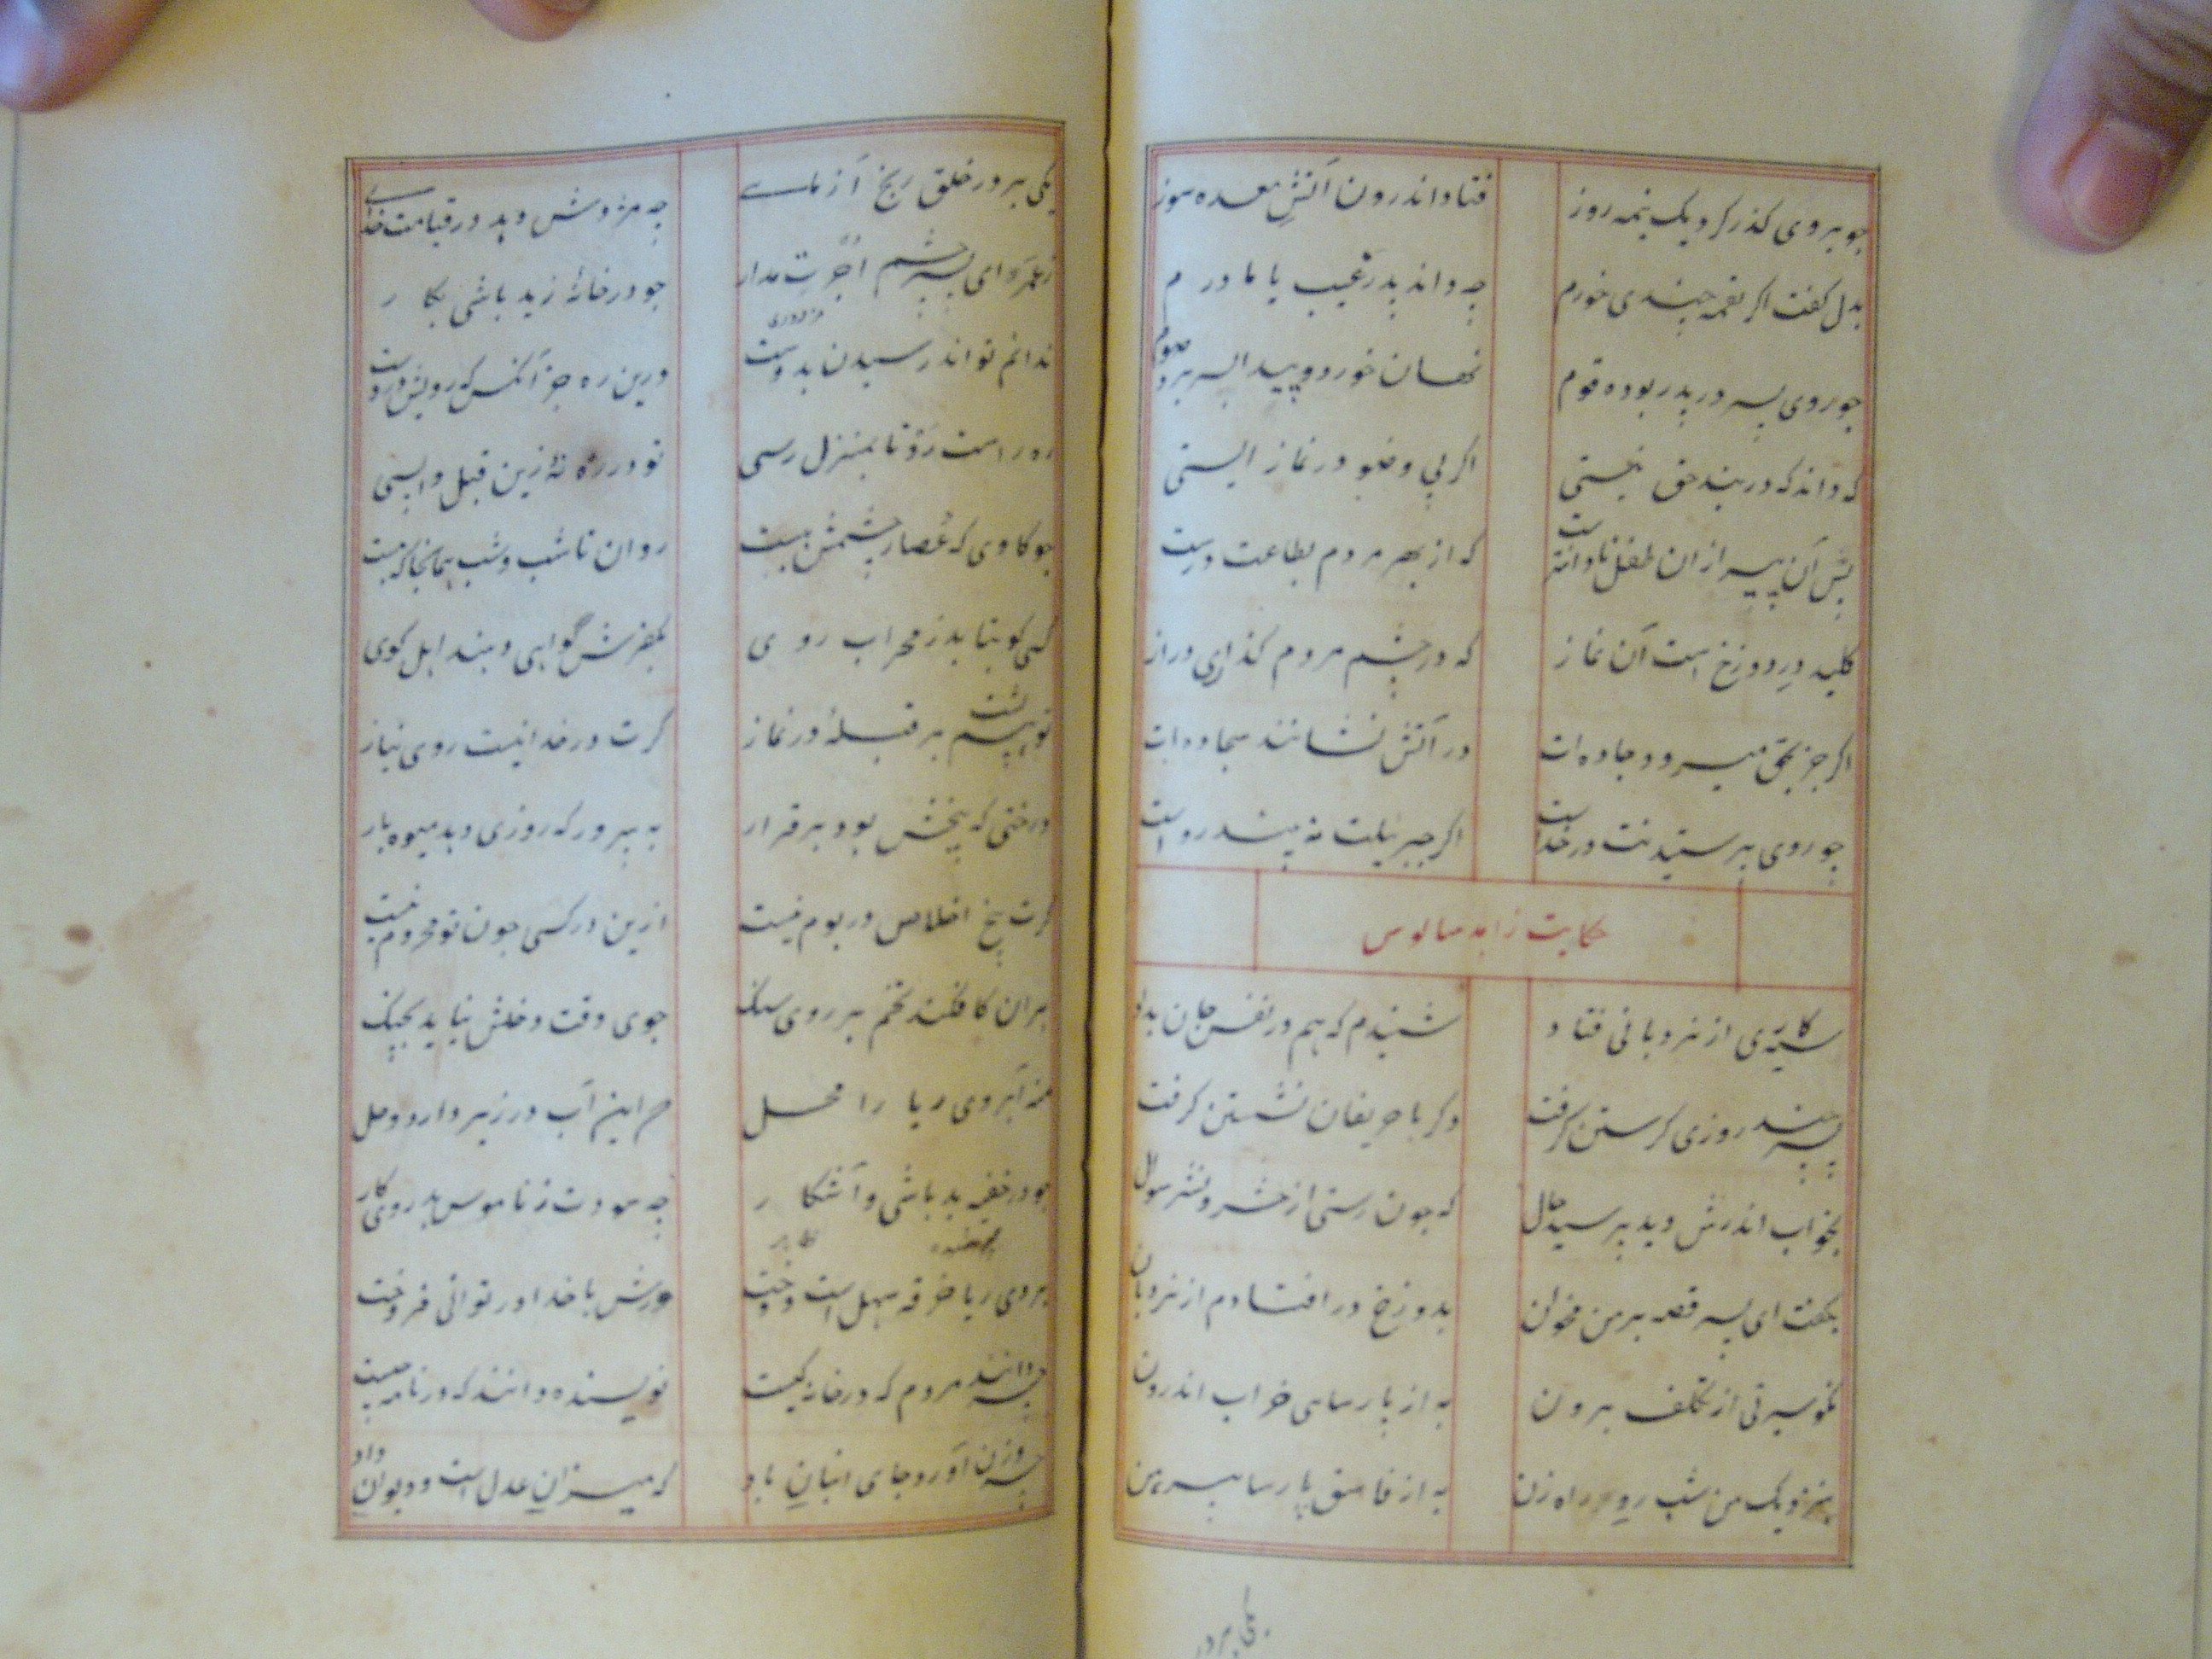 چو بر وی گذر کرد یک نیمه روز فتاد اندرون آتش معده سوز
بدل گفت اگر لقمه چندی خورم چه داند پدر غیب یا مادرم
چو روی پسر در پدر بود و قوم نهان خورد و پیدا بسر برد صوم
که داند که در بند حق نیستی اگر بی وضو در نماز ایستی
پس آن پیر از آن طفل نادانترست که از بهر مردم بطاعت درست
کلید در دوزخ است آن نماز که در چشم مردم گذاری دراز
اگر جز بحق میرود جاده ات در آتش نشانند سجاده ات
چو روی پرستیدنت در خداست اگر جبرئیلت نه بیند رواست
حکایت زاهد سالوس
سیه کاری از نردبانی فتاد شنیدم که هم در نفس جان بداد
پسر چند روزی گرستن گرفت دگر با حریفان نشستن گرفت
بخواب اندرش دید پرسید حال که چون رستی از حشر و نشر سوال
بگفت ای پسر قصه بر من مخوان بدوزخ در افتادم از نردبان
نکو سیرتی از تکلف برون به از پارسای خراب اندرون
بنزدیک من شب رو راه زن به از فاسق پارسا پیرهن
یکی بر در خلق رنج آزمای چه مزدوش دهد در قیامت خدای
ز عمرو ای پسر چشم اجرت مدار چو در خانه زید باشی بکار
مزدوری
ندانم تواند رسیدن بدوست درین ره جز آنکس که رویش دروست
ره راست رو تا بمنزل رسی تو در ره نه زین قبل واپسی
چو گاوی که عصار چشمش ببست روان تا شب و شب همانجا که هست
کسی کو بتابد ز محراب روی بکفرش گواهی دهند اهل کوی
تو هم پشت بر قبله در نماز گرت در خدا نیست روی نیاز
درختی که بیخش بود برقرار به پرور که روزی دهد میوه بار
گرت بیخ اخلاص در بوم نیست ازین در کسی چون تو محروم نیست
هر آن کافکند تخم بر روی سنگ جوی وقت دخلش نیاید بچنگ
منه آبروی ریا را محل که این آب در زیر دارد وحل
چو در خفیه بد باشی و آشکار چه سودت ز ناموس بر روی کار
بروی ریا خرقه سهل است دوخت گرش با خدا در توانی فروخت
چه دانند مردم که در خانه کیست نویسنده دانند که در نامه چیست
چه وزن آورد جای انبان باد که میزان عدل است و دیوان داد
یکی بر در